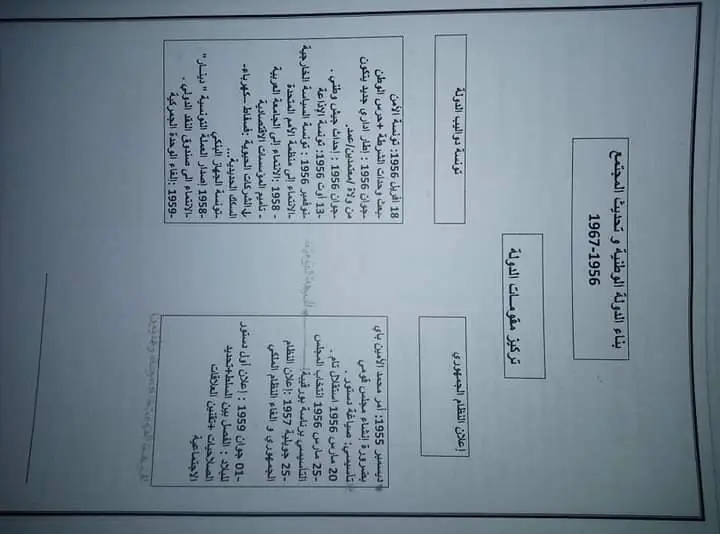 بناء الدولة الوطنية و تحديث المجتمع
1956-1967
تركيز مقومات الدولة
إعلان النظام الجمهوري
ديسمبر 1955: أمر محمد الأمين باي
بضرورة إنشاء مجلس قومي
تأسيسي: صياغة دستور.
20 مارس 1956 استقلال تام.
-25 مارس 1956 انتخاب المجلس
التأسيسي برئاسة بورقيبة
-25 جويلية 1957 :إعلان النظام
الجمهوري و الغاء النظام الملكي
-01 جوان 1959 : إعلان أول دستور
للبلاد : الفصل بين السلط+تحديد
الصلاحيات +تقنين العلاقات
الاجتماعية
تونسة دواليب الدولة
18 أفريل 1956: تونسة الأمن
-بعث وحدات الشرطة +حرس الوطن
-جوان 1956 : إطار إداري جديد يتكون
من ولاة /معتمدين/عمد.
-جوان 1956 : إحداث جيش وطني .
-13 أوت 1956: تونسة الإذاعة
-نوفمبر 1956 : تونسة السياسة الخارجية
-الانتماء إلى منظمة الأمم المتحدة
- 1958 :الانتماء إلى الجامعة العربية
- تأميم المؤسسات الاقتصادية
و الشركات الحيوية :فسفاط -كهرباء-
السكك الحديدية...
-تونسة الجهاز البنكي
-1958 إصدار العملة التونسية " دينار"
-الانتماء إلى صندوق النقد الدولي .
-1959 :إلغاء الوحدة الجمركية